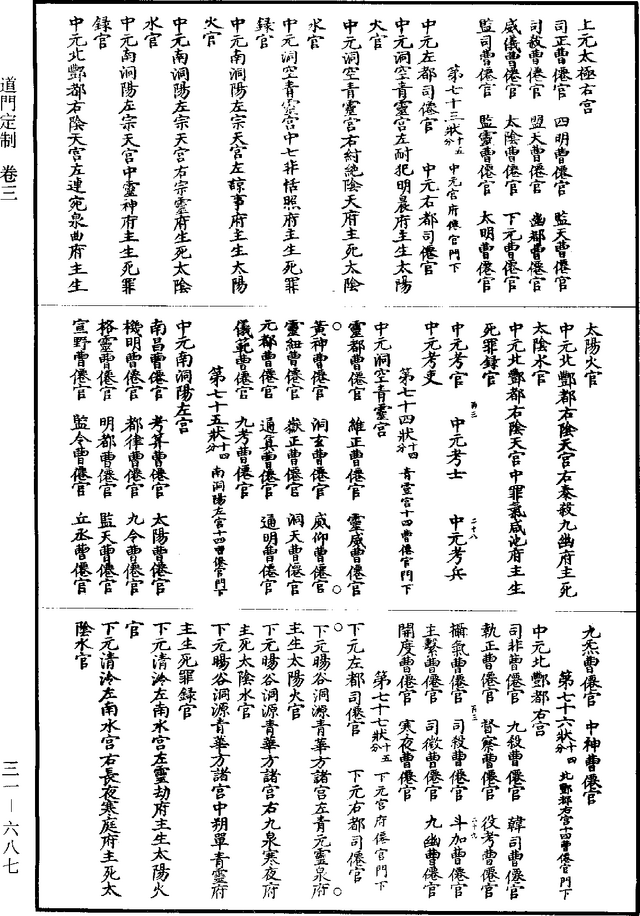 道門定制　卷三
三一—六八七
上元太極右宫
司正曹僊官　四明曹僊官　監天曹僊官
司救曹僊官　盟天曹僊官　幽都曹僊官
威儀曹僊官　太陰曹僊官　下元曹僊官
監司曹僊官　監靈曹僊官　太明曹僊官
第七十三狀十五分　中元官府僊官門下
中元左都司僊官　中元右都司僊官
中元洞空青靈宫左耐犯明晨府主生太陽
火官
中元洞空青靈宫右紂絶陰天府主死太陰
水官
中元洞空青靈宫中七非恬照府主生死罪
録官
中元南洞陽左宗天官左諒事府主生太陽
火官
中元南洞陽左宗天宫右宗靈府生死太陰
水官
中元南洞陽左宗天宫中靈神府主生死罪
録官
中元北酆都右陰天宫左連宛泉曲府主生
太陽火官
中元北酆都右陰天宫右泰殺九幽府主死
太陰水官
中元北酆都右陰天宫中罪氣咸池府主生
死罪録官
中元考官　中元考士　中元考兵
中元考吏
第七十四狀十四分　青靈宫十四曹僊官門下
中元洞空青靈宫
靈都曹僊官　維正曹僊官　靈威曹僊官
黄神曹僊官　洞玄曹僊官　威仰曹僊官
靈紐曹僊官　嶽正曹僊官　洞天曹僊官
元都曹僊官　通真曹僊官　通明曹僊官
儀範曹僊官　九考曹僊官
第七十五狀十四分　南洞陽左宫十四曹僊官門下
中元南洞陽左宫
南昌曹僊官　考算曹僊官　太陽曹僊官
機明曹僊官　都律曹僊官　九令曹僊官
格靈曹僊官　明都曹僊官　監天曹僊官
宣野曹僊官　監令曹僊官　丘丞曹僊官
九炁曹僊官　中神曹僊官
第七十六狀十四分　北酆都右宫十四曹僊官門下
中元北酆都右宫
司非曹僊官　九殺曹僊官　韓司曹僊官
執正曹僊官　督察曹僊官　役考曹僊官
攝氣曹僊官　司殺曹僊官　斗加曹僊官
主繫曹僊官　司徵曹僊官　九幽曹僊官
開度曹僊官　寒夜曹僊官
第七十七狀十五分　下元官府僊官門下
下元左都司僊官　下元右都司僊官
下元暘谷洞源青華方諸宫左青元靈泉府
主生太陽火官
下元暘谷洞源青華方諸宫右九泉寒夜府
主死太陰水官
下元暘谷洞源青華方諸宫中朔單青靈府
主生死罪録官
下元清泠左南水宫左靈劫府主生太陽火
官
下元清泠左南水宫右長夜寒庭府主死太
陰水官